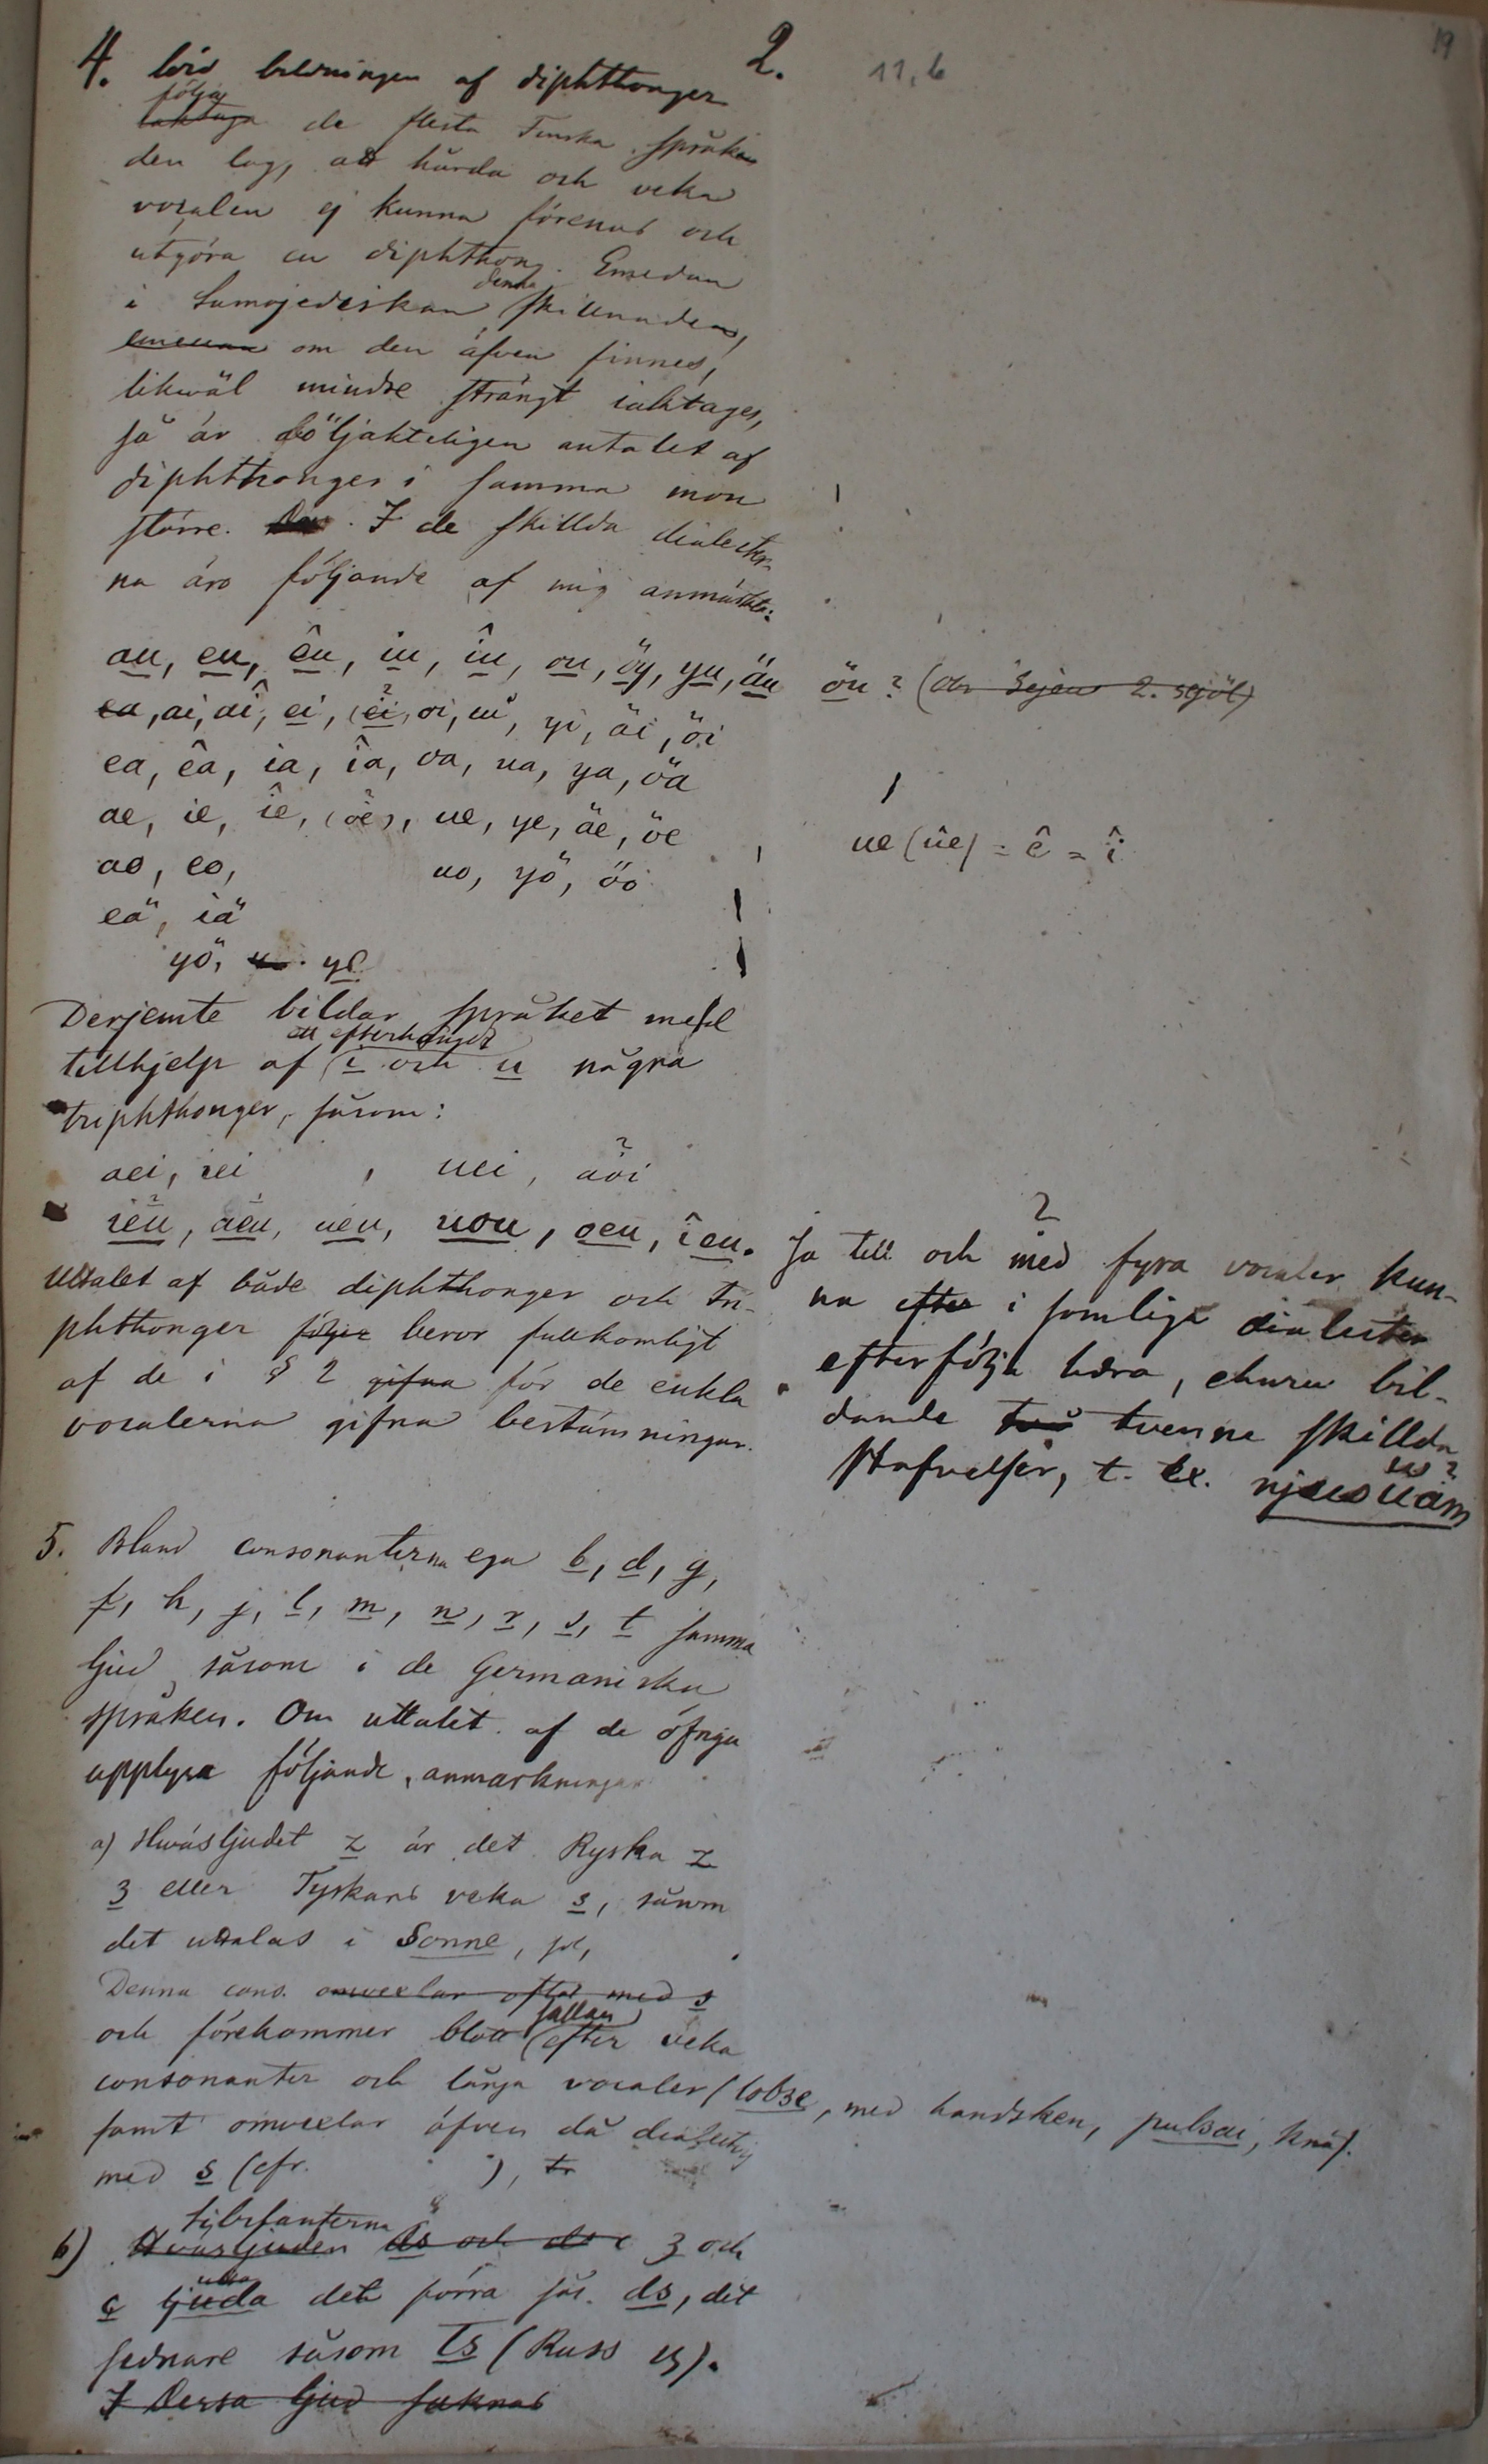 19
2.
11, b
4. bildningen af diphthonger
följa
iakttaga de flesta Finska språken
den lag, att hårda och veka
vocaler ej kunna förenas och
utgöra en diphthong. Emedan
denna
i Samojediskan skillnaden,
emedan om den äfven finnes,
likwäl mindre strängt iakttages,
så är följakteligen antalet af
diphthonger i samma mon
större. I de skillda dialecter-
na äro följande af mig anmärkta:
au, eu, êu, iu, îu, ou, öy, yu, äu öu? (
ea, ai, aî, ei, (êi, oi, ui, yi, äi, öi
ea, êa, ia, îa, oa, ua, ya, öa
ae, ie, îe, (oe), ue, ye, äe, öe
ue (ûe) = ê = î
ao, eo, uo, yö, öo
eä, iä
yö, ye
Derjemte bildar språket med
ett efterhängdt
tillhjelp af i och u några
triphthonger, såsom:
aei, iei , uei, äöi
ieu, aeu, ueu, uou, oeu, îeu.
Uttalet af både diphthonger och tri-
phthonger följer beror fullkomligt
af de i § 2 gifna för de enkla
vocalerna gifna bestämningar.
Ja till och med fyra vocaler kun-
na efter i somliga dialecter
efterfölja hvarandra, ehuru bil-
dande två tvenne skillda
stafvelser, t. ex.
5. Bland consonanterna ega b, d, g,
f, h, j, l, m, n, r, s, t samma
ljud såsom i de Germaniska
språken. Om uttalet af de öfriga
upplysa följande anmärkningar
a) Hwäsljudet z är det Ryska z
з eller Tyskans veka s, såsom
det uttalas i Sonne, sol,
Denna cons. omvexlar ofta med s
sällan
och förekommer blott efter veka
consonanter och långa vocaler (lobze, med handsken, pulsai, knä).
samt omvexlar äfven då dialectvis
med s (cfr. ),
Sibilanterna
b) Hväsljuden ds och з och
ç ljuda det förra sås. ds, det
sednare såsom Ts (Russ ц).
I Dessa ljud saknas